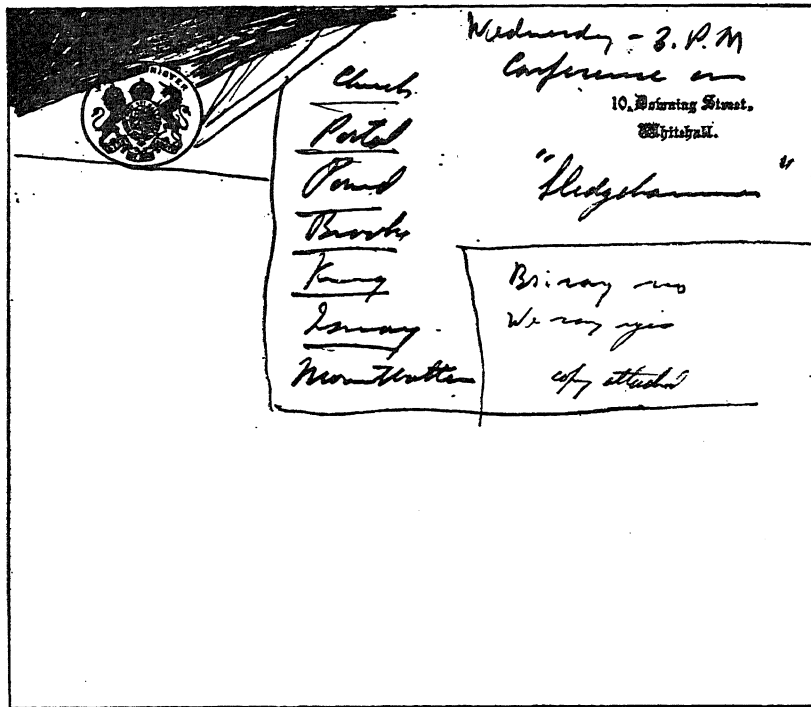 Wednesday - 3. P.M
Conference on
10, Downing Street,
Whitehall.
"Sledgehammer"
Church
Portal
Pound
Brooke
King
Ismay.
Mountbatten
Bri. say no
We say yes
copy attached